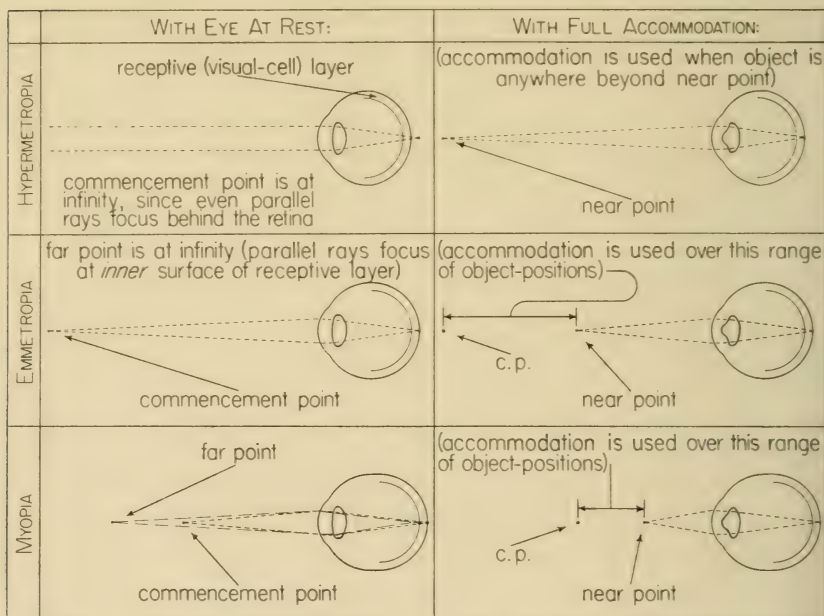 WITH EYE AT REST:
WITH FULL ACCOMMODATION:
HYPERMETROPIA
receptive (visual-cell) layer
commencement point is at
infinity, since even parallel
rays focus behind the retina
(accommodation is used when object is
anywhere beyond near point)
near point
EMMETROPIA
far point is at infinity (parallel rays focus
at inner surface of receptive layer)
commencement point
(accommodation is used over this range
of object-positions)
c.p.
near point
MYOPIA
far point
commencement point
(accommodation is used over this range
of object-positions)
c.p.
near point